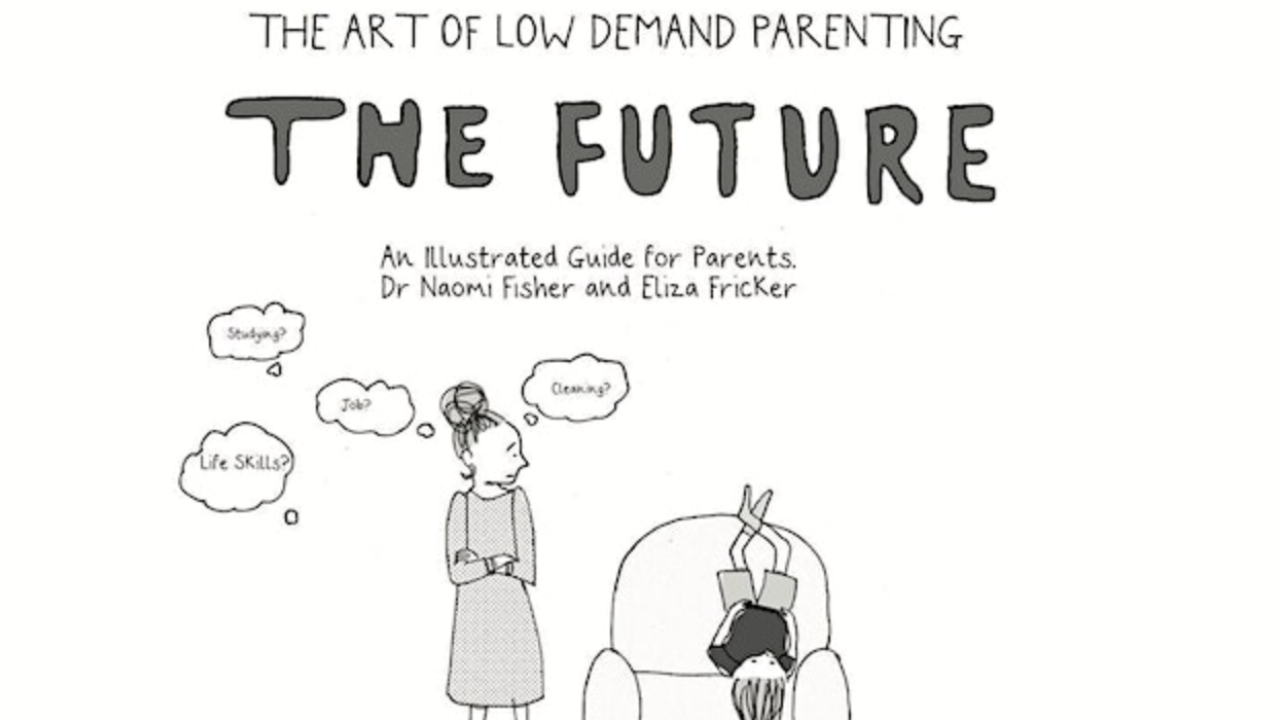 THE ART OF LOW DEMAND PARENTING
THE FUTURE
An Illustrated Guide for Parents.
Dr Naomi Fisher and Eliza Fricker
Studying?
Job?
Cleaning?
Life Skills?